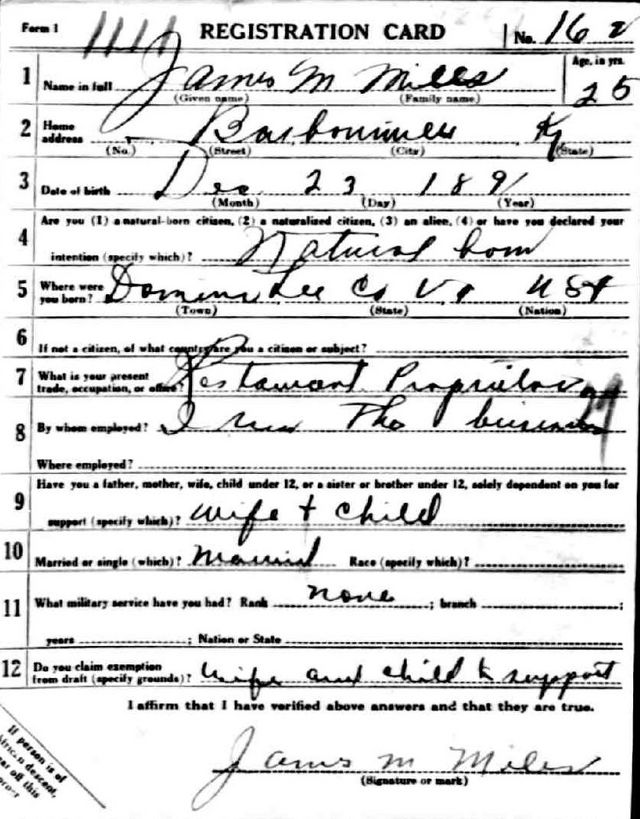 Form 1 1111 REGISTRATION CARD No. 162
1 Name in full James M Mills Age, in yrs. 25
(Given name) (Family name)
2 Home address Barbourville Ky
(No.) (Street) (City) (State)
3 Date of birth Dec 23 1891
(Month) (Day) (Year)
4 Are you (1) a natural-born citizen, (2) a naturalized citizen, (3) an alien, (4) or have you declared your
intention (specify which)? Natural born
5 Where were you born? Lee Co Va USA
(Town) (State) (Nation)
6 If not a citizen, of what country are you a citizen or subject?
7 What is your present trade, occupation, or office? Restaurant Proprietor
8 By whom employed? I run The business
Where employed?
9 Have you a father, mother, wife, child under 12, or a sister or brother under 12, solely dependent on you for
support (specify which)? wife + child
10 Married or single (which)? Married Race (specify which)?
11 What military service have you had? Rank none ; branch ;
years ; Nation or State
12 Do you claim exemption from draft (specify grounds)? wife and child to support
I affirm that I have verified above answers and that they are true.
James M Mills
(Signature or mark)
If person is of
African descent,
tear off this
corner